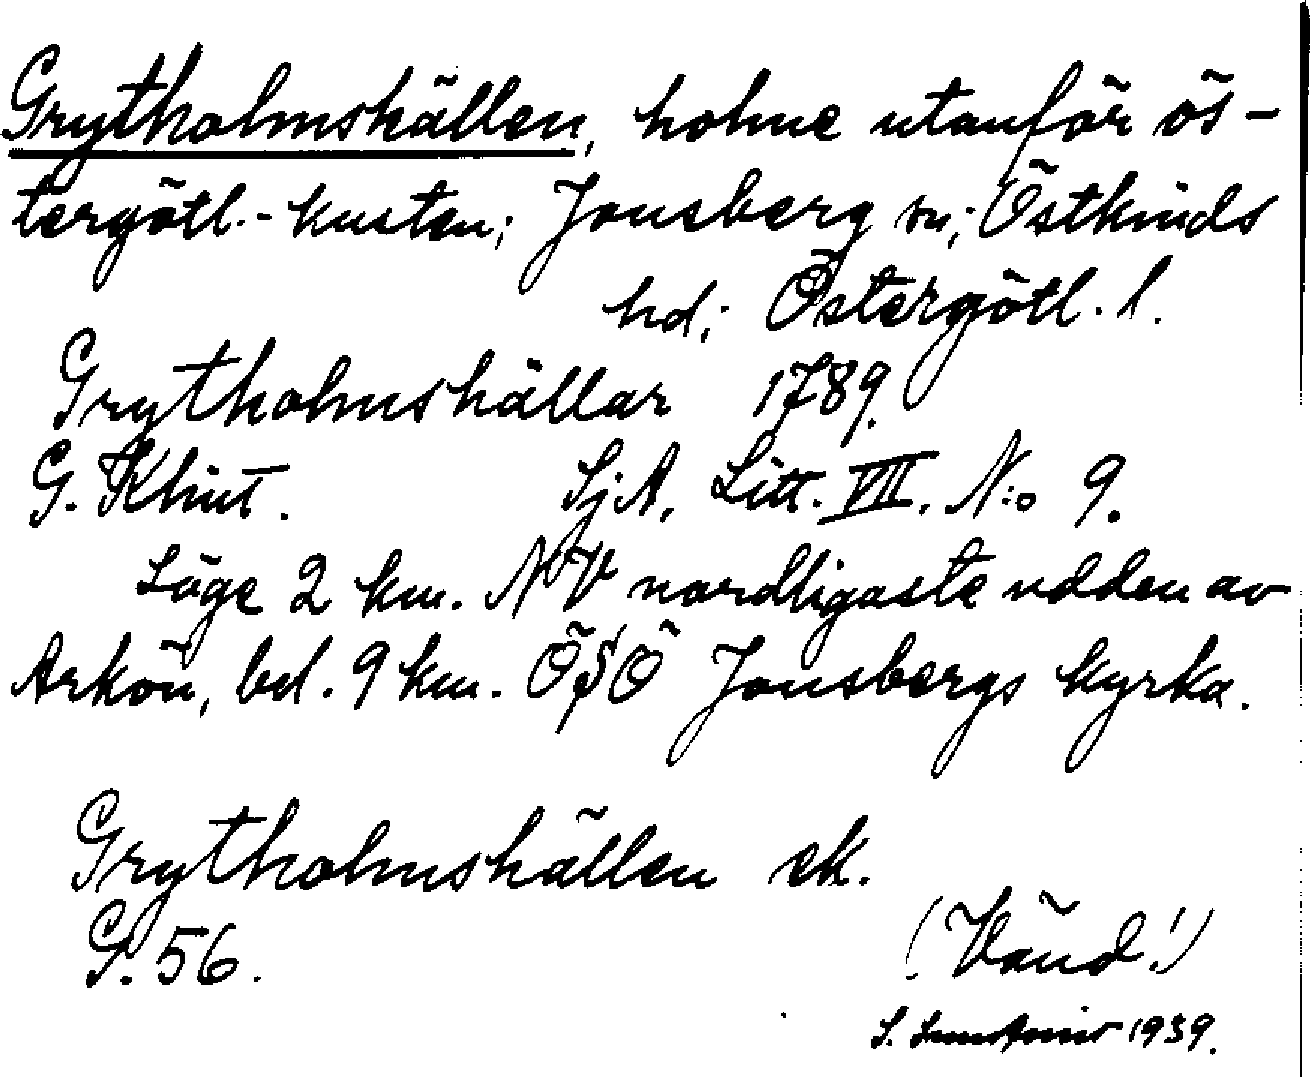 Grytholmshällen, holme utanför ös-
tergötl.-kusten; Jonsberg sn; Östkinds
hd; Östergötl. l.
Grytholmshällar 1789.
G. Klint. SjA, Litt. VII. N:o 9.
Läge 2 km. NV nordligaste udden av
Arkön, bel. 9 km. ÖSÖ Jonsbergs kyrka.
Grytholmshällen ek.
G. 56.
(Vänd!)
S. 1939.